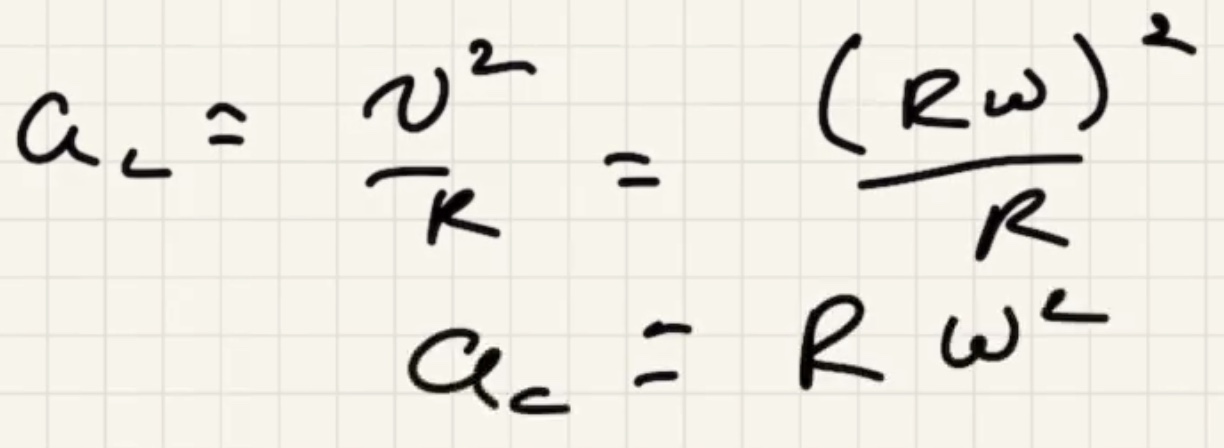 a_c = v²/R = (Rω)²/R
a_c = R ω²